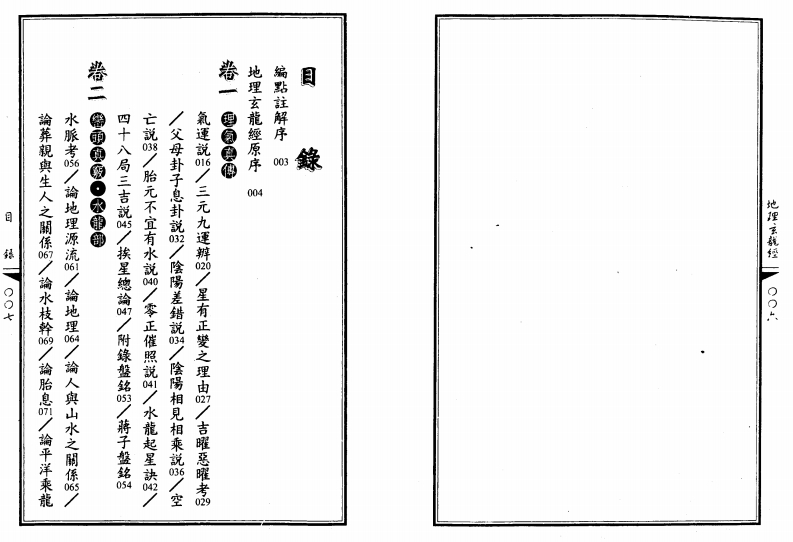 地理玄龍經
〇〇六
目錄
編點註解序 003
地理玄龍經原序 004
卷一 理氣真傳
氣運説016／三元九運辨020／星有正變之理由027／吉曜惡曜考029
／父母卦子息卦説032／陰陽差錯説034／陰陽相見相乘説036／空
亡説038／胎元不宜有水説040／零正催照説041／水龍起星訣042／
四十八局三吉説045／挨星總論047／附錄盤銘053／蔣子盤銘054
卷二 巒頭真竅・水龍部
水脈考056／論地理源流061／論地理064／論人與山水之關係065／
論葬親與生人之關係067／論水枝幹069／論胎息071／論平洋乘龍
目錄
〇〇七